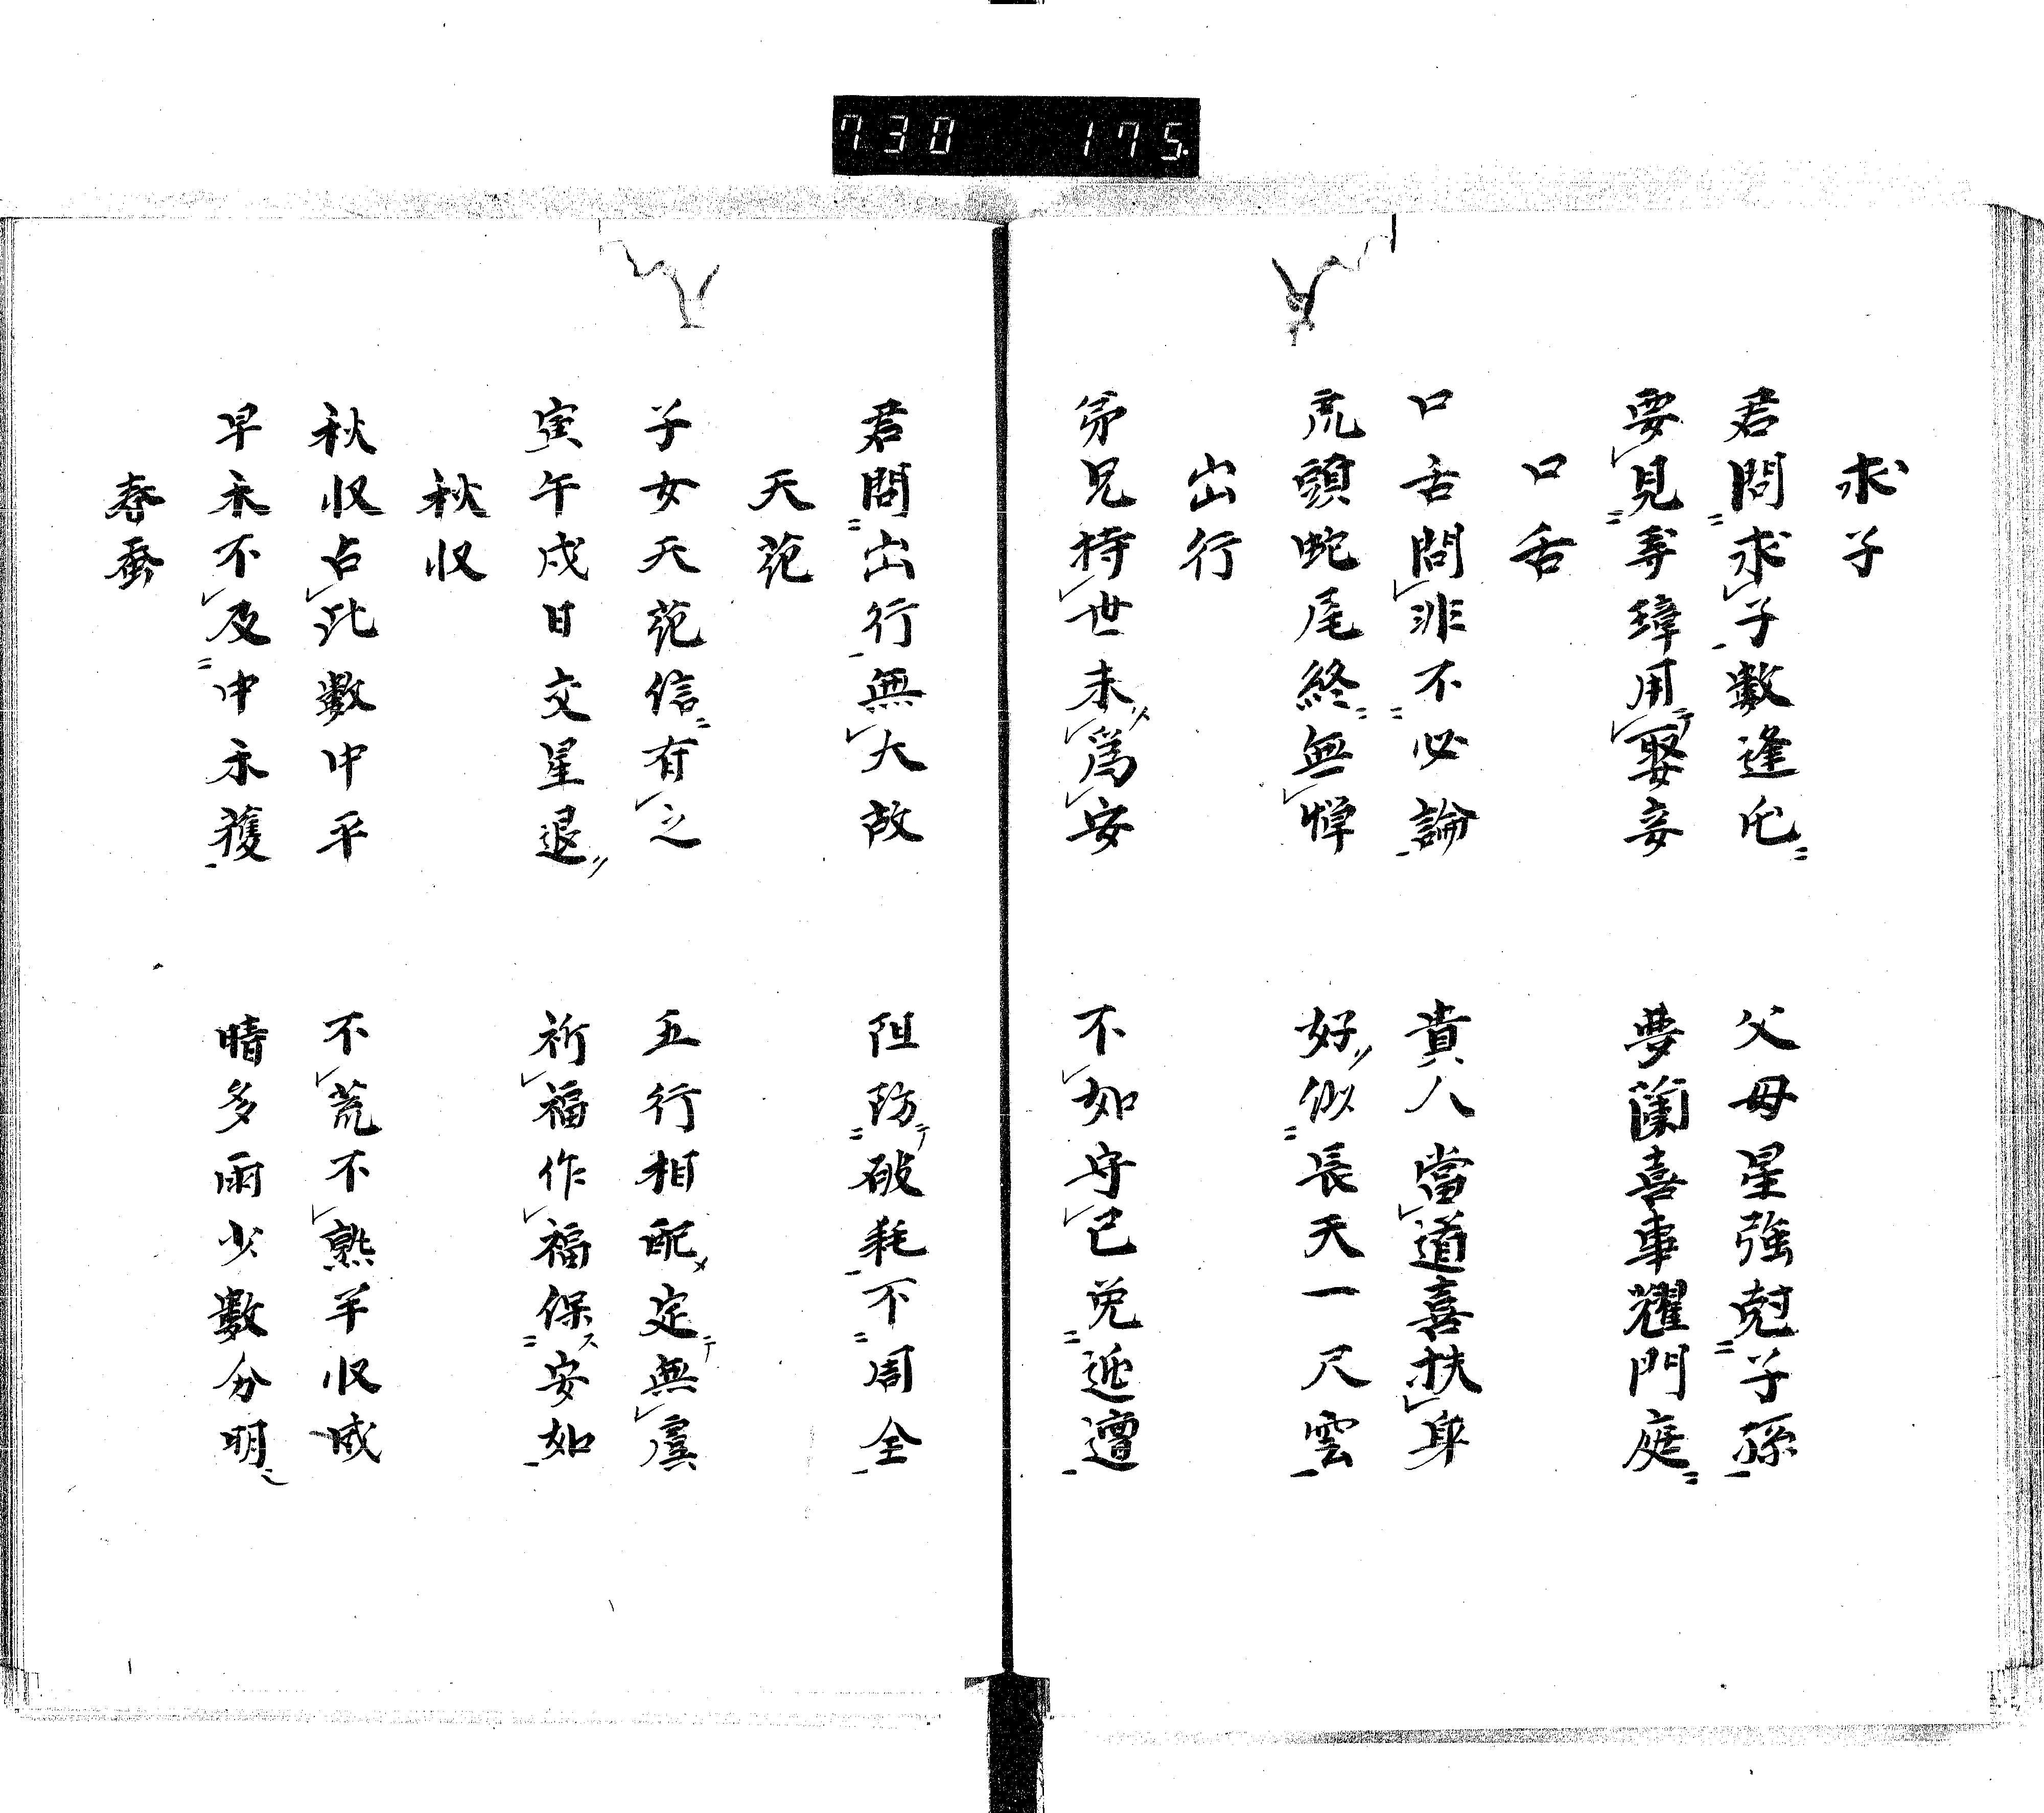 730 175
求子
君問求子數逢屯 父母星強尅子孫
要見弄璋用娶妾 夢蘭喜事耀門庭
口舌
口舌問非不必論 貴人當道喜扶身
虎頭蛇尾終無憚 好似長天一尺雲
出行
弟兄持世未爲安 不如守己免迍邅
君問出行無大故 阻防破耗不周全
天花
子女天花信有之 五行相配定無虞
寅午戌日交星退 祈福作福保安如
秋収
秋収占此數中平 不荒不熟半収成
早禾不及中禾獲 晴多雨少數分明
春蚕